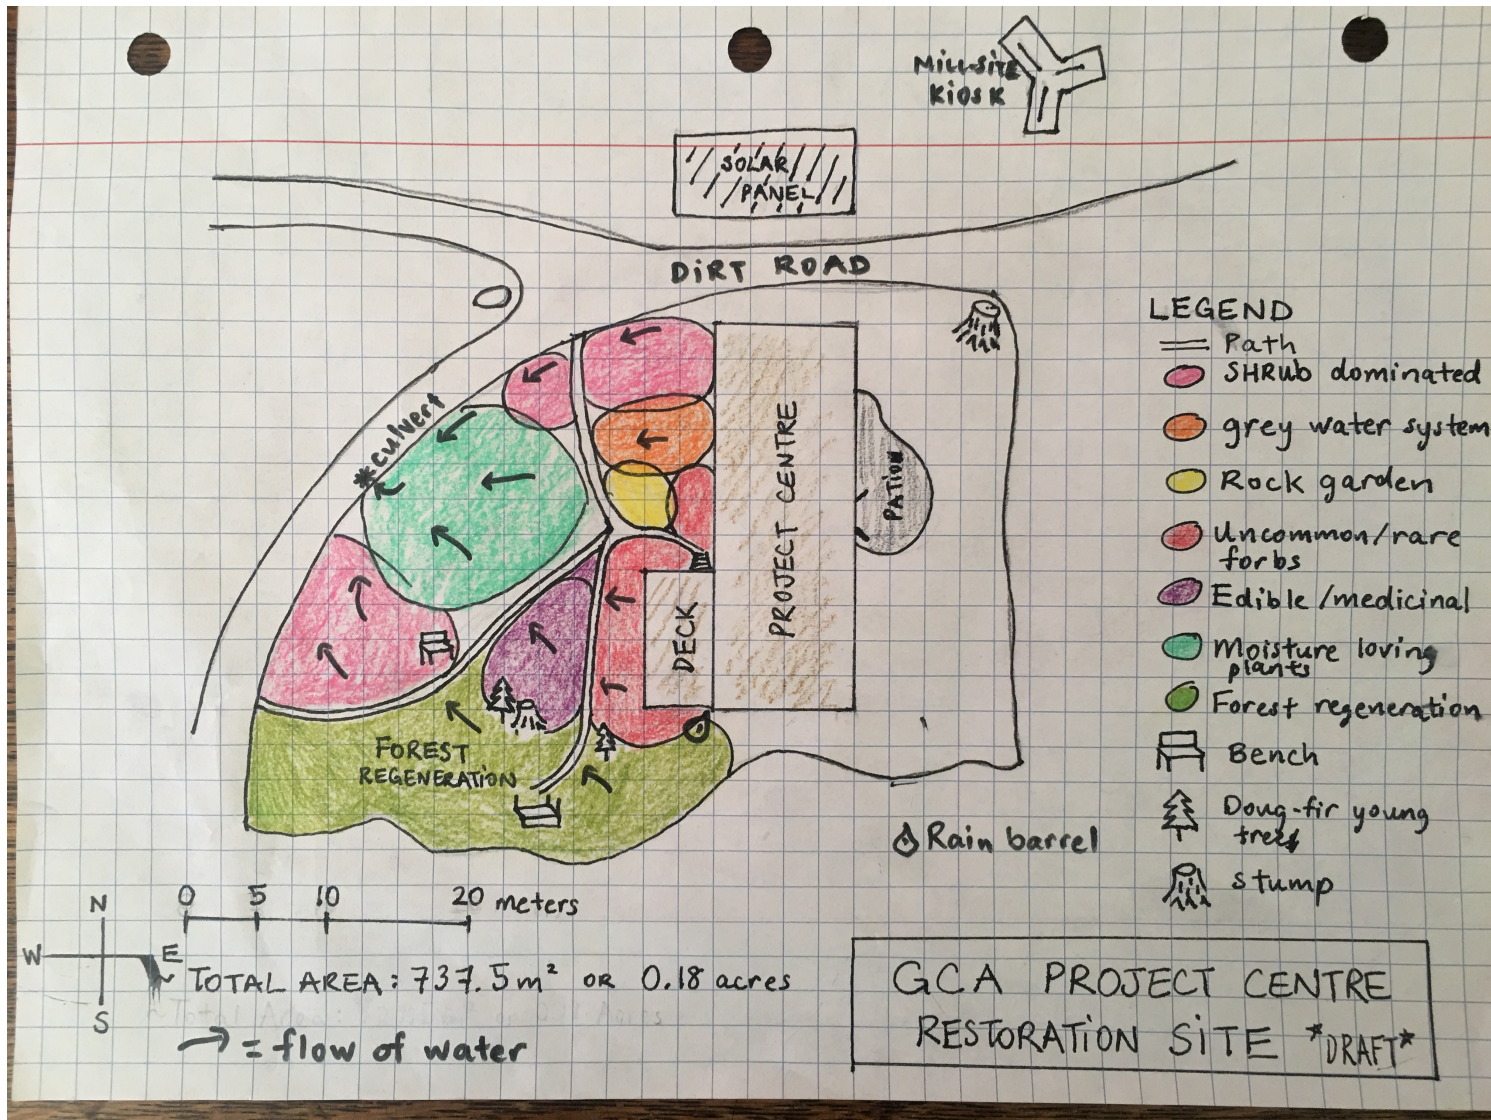 Mill-Site
Kiosk
SOLAR
PANEL
DiRT ROAD
*culvert
PROJECT CENTRE
PATIO
DECK
FOREST
REGENERATION
LEGEND
Path
SHRub dominated
grey water system
Rock garden
Uncommon/rare
forbs
Edible/medicinal
Moisture loving
plants
Forest regeneration
Bench
Doug-fir young
trees
stump
Rain barrel
0 5 10 20 meters
N
W E
S
TOTAL AREA: 737.5m² OR 0.18 acres
→ = flow of water
GCA PROJECT CENTRE
RESTORATiON SiTE *DRAFT*